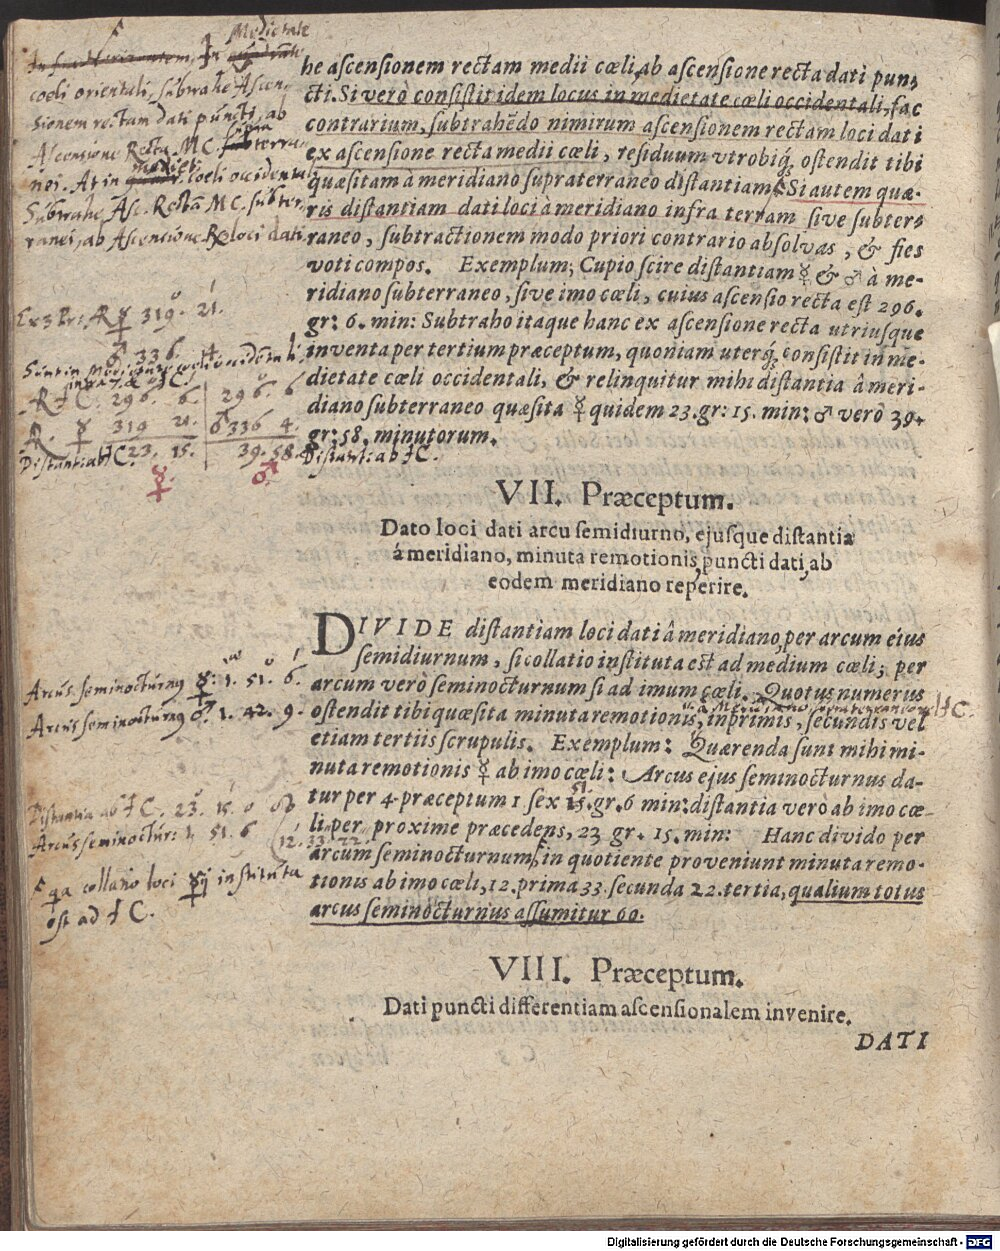 he ascensionem rectam medii cœli, ab ascensione recta dati pun-
cti. Si verò consistit idem locus in medietate cœli occidentali, fac
contrarium, subtrahēdo nimirum ascensionem rectam loci dati
ex ascensione recta medii cœli, residuum utrobiq; ostendit tibi
quæsitam à meridiano supraterraneo distantiam. Si autem quæ-
ris distantiam dati loci à meridiano infra terram sive subter-
raneo, subtractionem modo priori contrario absolvas, & fies
voti compos. Exemplum; Cupio scire distantiam ☿ & ♂ à me-
ridiano subterraneo, sive imo cœli, cuius ascensio recta est 296.
gr: 6. min: Subtraho itaque hanc ex ascensione recta utriusque
inventa per tertium præceptum, quoniam uterq; consistit in me-
dietate cœli occidentali, & relinquitur mihi distantia â meri-
diano subterraneo quæsita ☿ quidem 23. gr: 15. min: ♂ verò 39.
gr: 58. minutorum.
Medietate
coeli orientali, subtrahe Ascen-
sionem rectam dati puncti, ab
Ascensione Recta MC. supterra-
nei. At in coeli occidentali
Subtrahe, Asc. Rectā MC. subter-
ranei, ab Ascensione R. loci dati.
319. 21.
♂ 336. 4
296. 6. 296. 6
☿ 319 21. ♂ 336 4.
Distantia ab IC. 23. 15. 39. 58. Distant: ab IC.
☿ ♂
VII. Præceptum.
Dato loci dati arcu semidiurno, ejusque distantia
á meridiano, minuta remotionis, puncti dati, ab
eodem meridiano reperire.
DIVIDE distantiam loci dati â meridiano, per arcum eius
semidiurnum, si collatio instituta est ad medium cœli; per
arcum verò seminocturnum si ad imum cœli. Quotus numerus
ostendit tibi quæsita minuta remotionis, inprimis, secundis vel
etiam tertiis scrupulis. Exemplum: Quærenda sunt mihi mi-
nuta remotionis ☿ ab imo cœli: Arcus ejus seminocturnus da-
tur per 4. præceptum 1 sex 15. gr. 6 min: distantia verò ab imo cœ-
li per proxime præcedens, 23 gr. 15. min: Hanc divido per
arcum seminocturnum, in quotiente proveniunt minuta remo-
tionis ab imo cœli, 12. prima 33. secunda 22. tertia, qualium totus
arcus seminocturnus assumitur 60.
51.
Arcus seminocturnus ☿: 1. 51. 6.
Arcus seminocturnus ♂. 1. 42. 9.
Distantia ab IC. 23. 15. 0
Arcus seminoctur: 1. 51. 6 (12. 33. 22.
collatio loci ☿ii instituta
est ad IC.
VIII. Præceptum.
Dati puncti differentiam ascensionalem invenire.
DATI
Digitalisierung gefördert durch die Deutsche Forschungsgemeinschaft - DFG